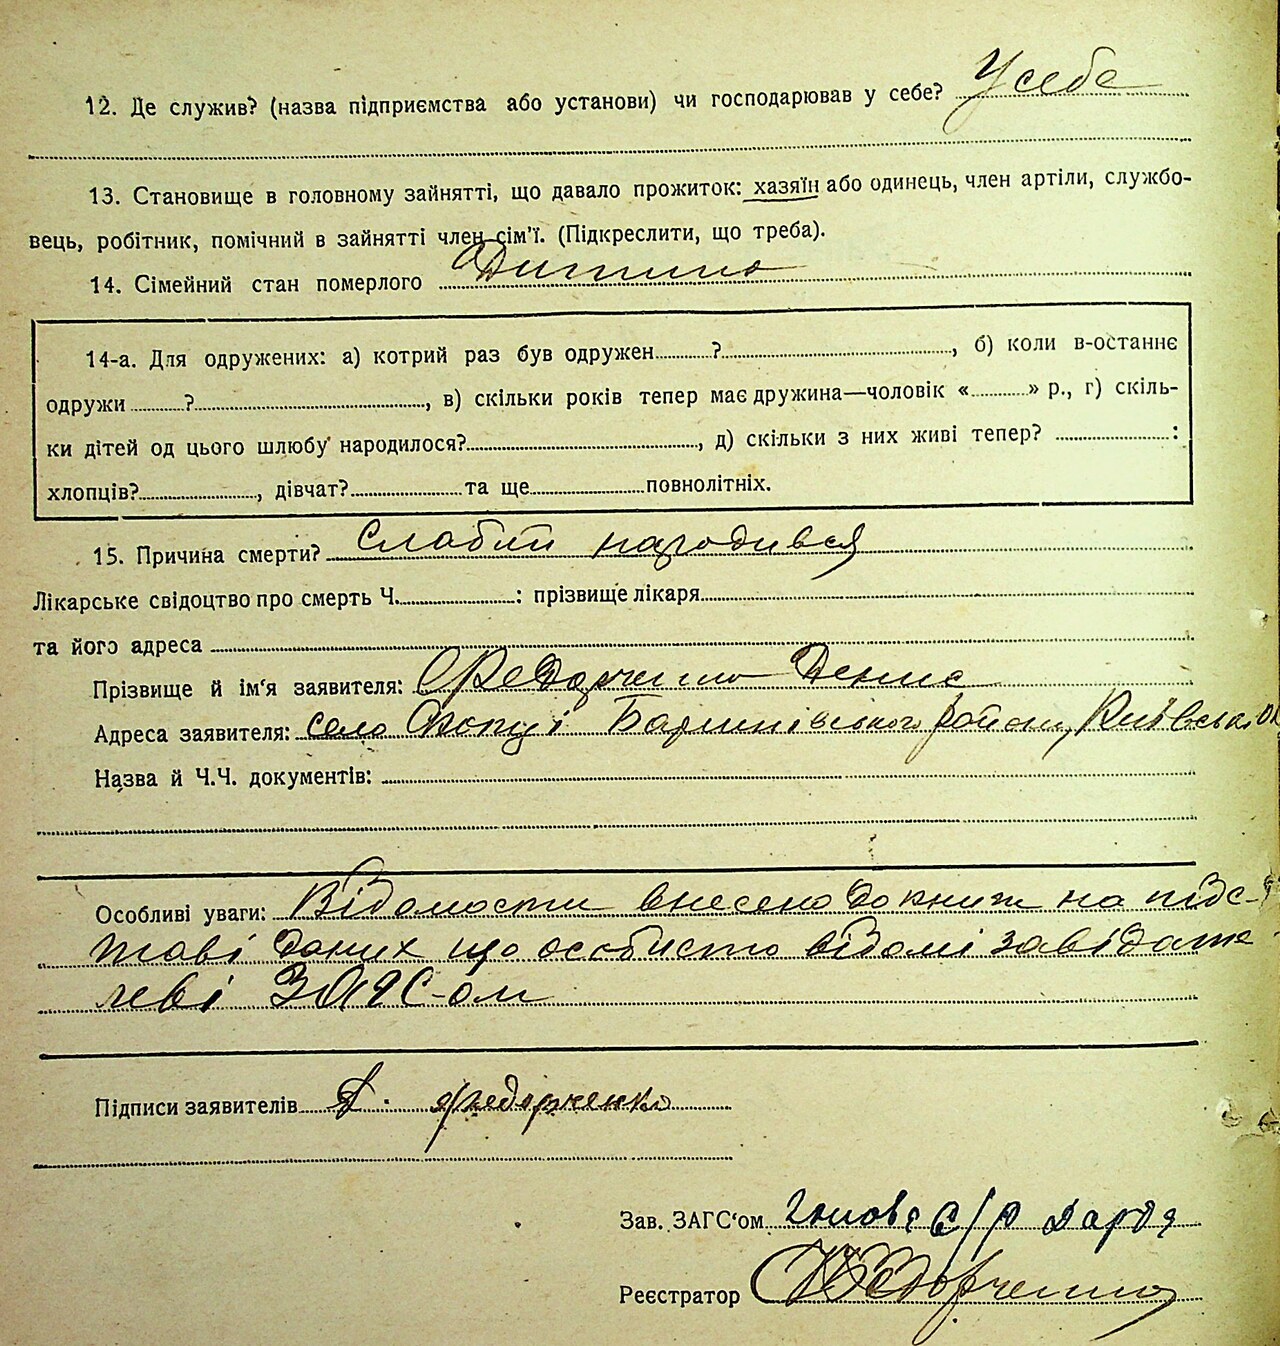 12. Де служив? (назва підприємства або установи) чи господарював у себе? У себе
13. Становище в головному зайнятті, що давало прожиток: хазяїн або одинець, член артіли, службо-
вець, робітник, помічний в зайнятті член сім'ї. (Підкреслити, що треба).
14. Сімейний стан померлого Дитина
14-а. Для одружених: а) котрий раз був одружен ? , б) коли в-останнє
одружи ? , в) скільки років тепер має дружина—чоловік « » р., г) скіль-
ки дітей од цього шлюбу народилося? , д) скільки з них живі тепер? :
хлопців? , дівчат? та ще повнолітніх.
15. Причина смерти? Слабий народився
Лікарське свідоцтво про смерть Ч. : прізвище лікаря
та його адреса
Прізвище й ім'я заявителя: Федорченко Денис
Адреса заявителя: село Баришівського району, Київськ
Назва й Ч.Ч. документів:
Особливі уваги: Відомости внесено до книги на підс-
таві даних що особисто відомі завідате
леві ЗАГС-ом
Підписи заявителів Д. Федорченко
Зав. ЗАГС'ом голова С/Р
Реєстратор Федорченко